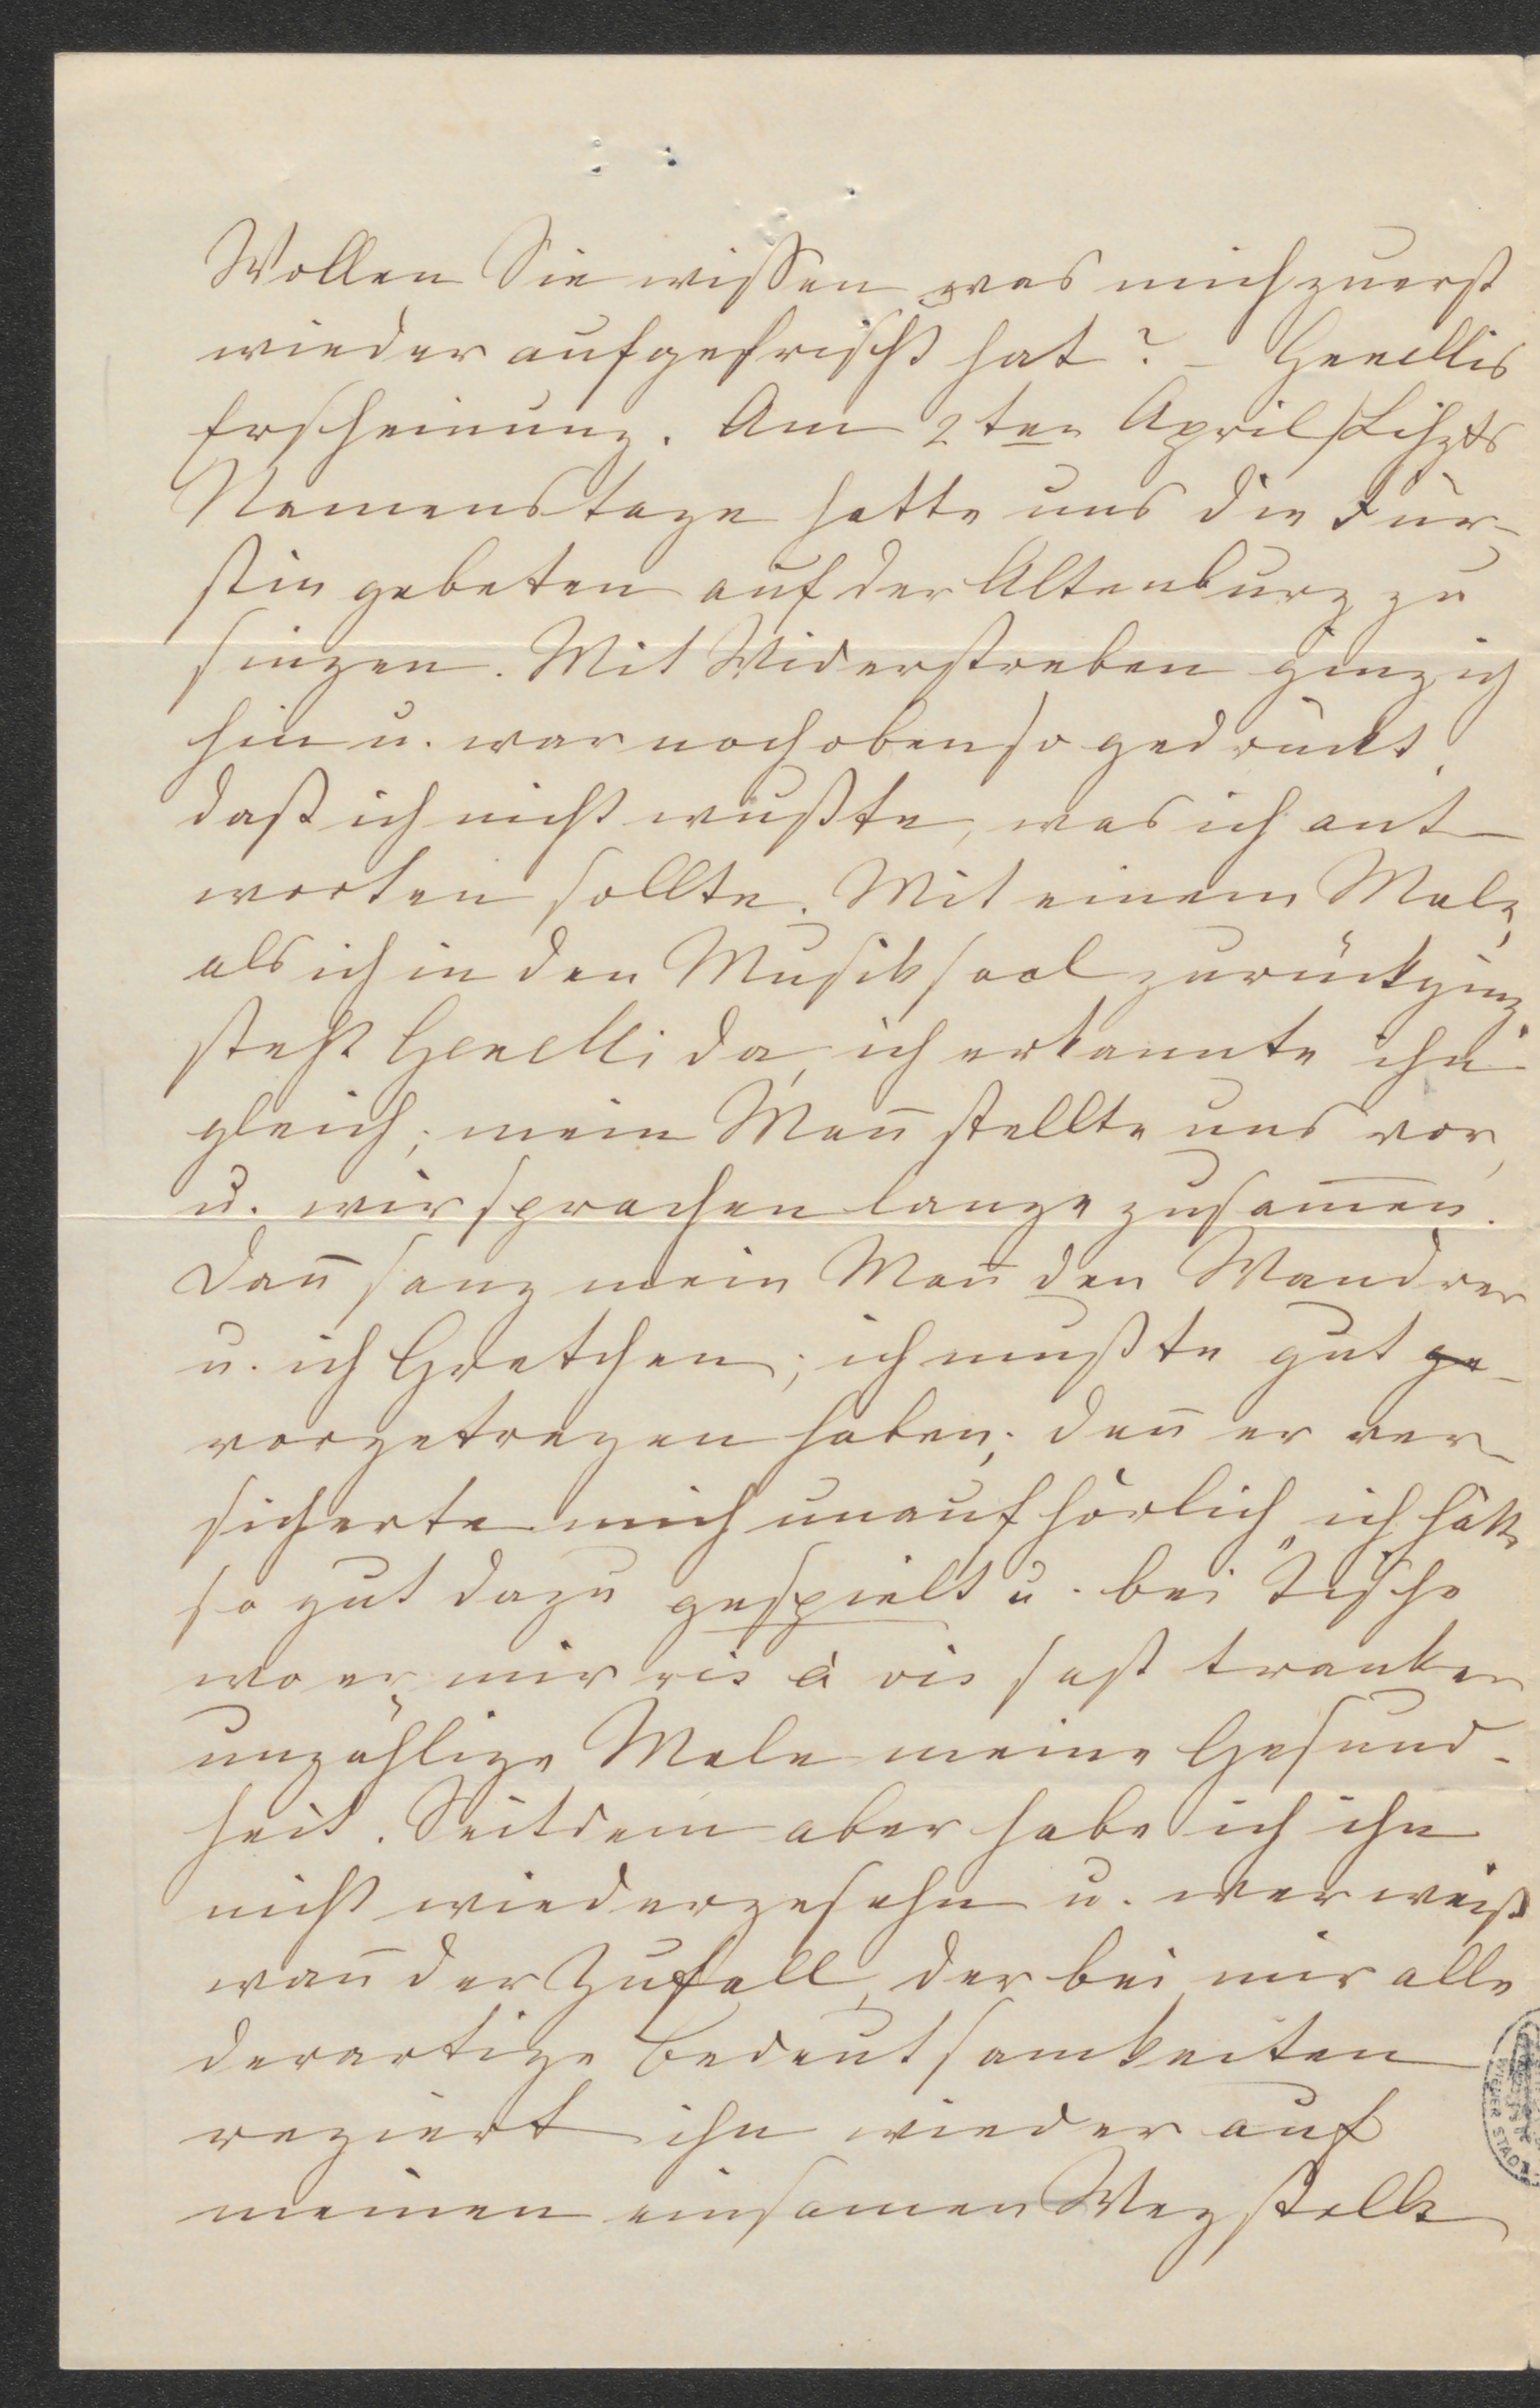 Wollen Sie wissen, was mich zuerst
wieder aufgefrischt hat? – Genellis
Erscheinung. Am 2ten April, Lißzts
Namenstage hatte uns die Für-
stin gebeten auf der Altenburg zu
singen. Mit Widerstreben ging ich
hin u. war noch oben so gedrückt,
daß ich nicht wußte, was ich ant-
worten sollte. Mit einem Male,
als ich in den Musiksaal zurückging,
steht Genelli da, ich erkannte ihn
gleich; mein Mañ stellte uns vor,
u. wir sprachen lange zusam̄en.
Dañ sang mein Mañ den Wandrer
u. ich Gretchen; ich mußte gut ge-
vorgetragen haben; deñ er ver-
sicherte mich unaufhörlich, ich hätte
so gut dazu gespielt u. bei Tische
wo er mir vis à vis saß tranken
unzählige Male meine Gesund-
heit. Seitdem aber habe ich ihn
nicht wiedergesehn u. wer weiß
wañ der Zufall, der bei mir alle
derartige Bedeutsamkeiten
regiert ihn wieder auf
meinen einsamen Weg stellt
WIENER STADT